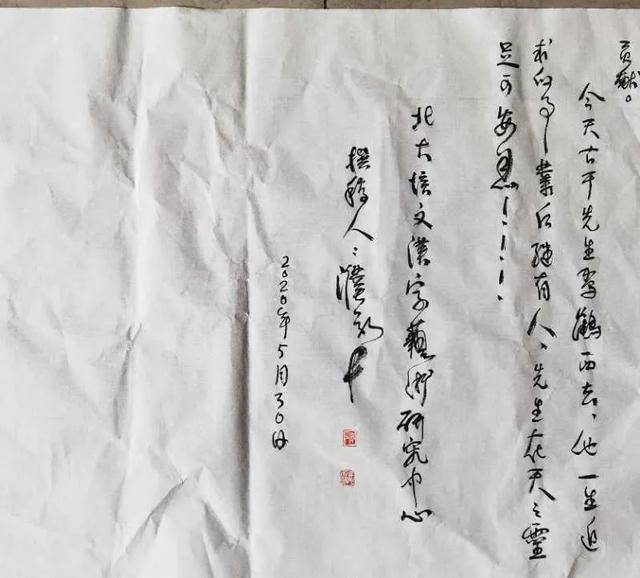 贡献。
今天古干先生驾鹤西去，他一生追
求的事业后继有人，先生在天之灵
足可安息！！！！
北大培文漢字藝術研究中心
撰稿人：
2020年5月30日